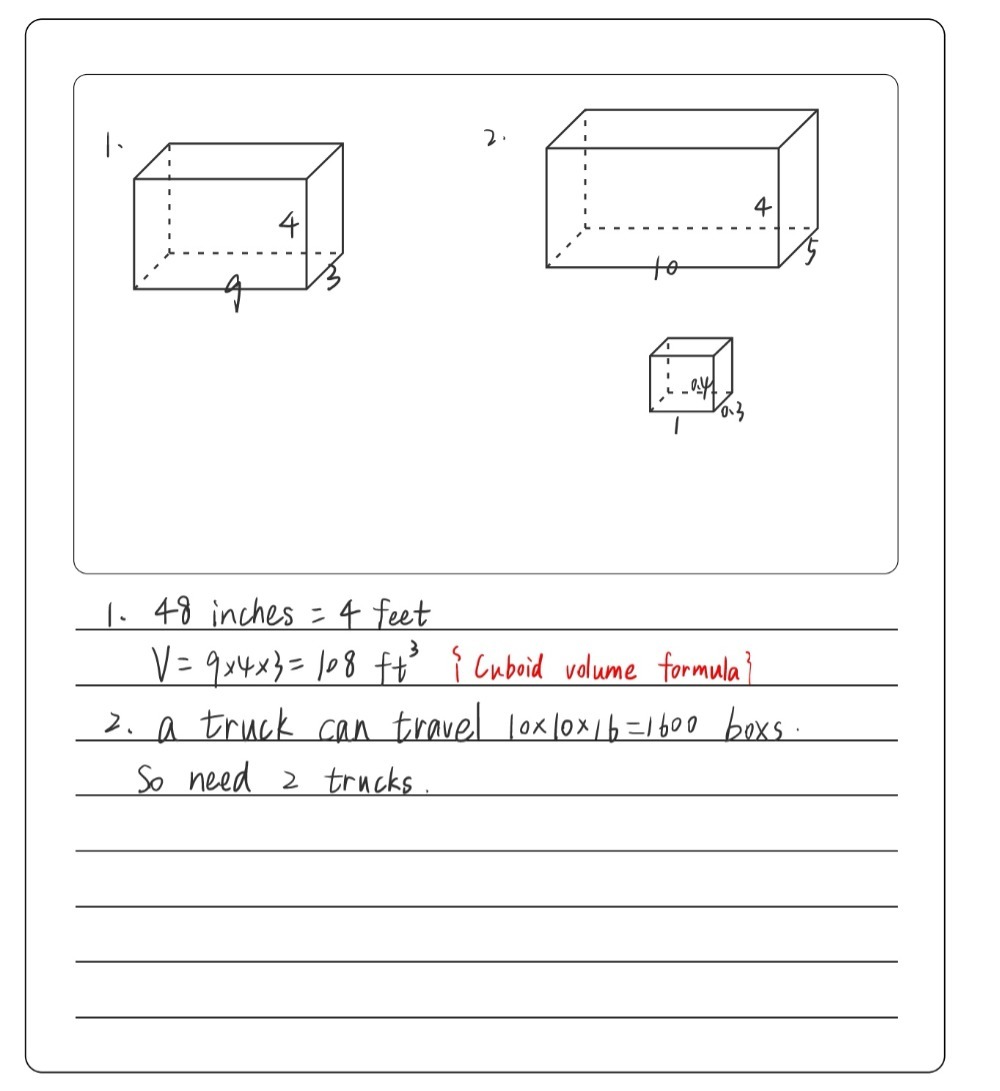 1.
4
9
3
2.
4
10
5
0.4
0.3
1
1. 48 inches = 4 feet
V = 9x4x3 = 108 ft³ {Cuboid volume formula}
2. a truck can travel 10x10x16=1600 boxs.
So need 2 trucks.